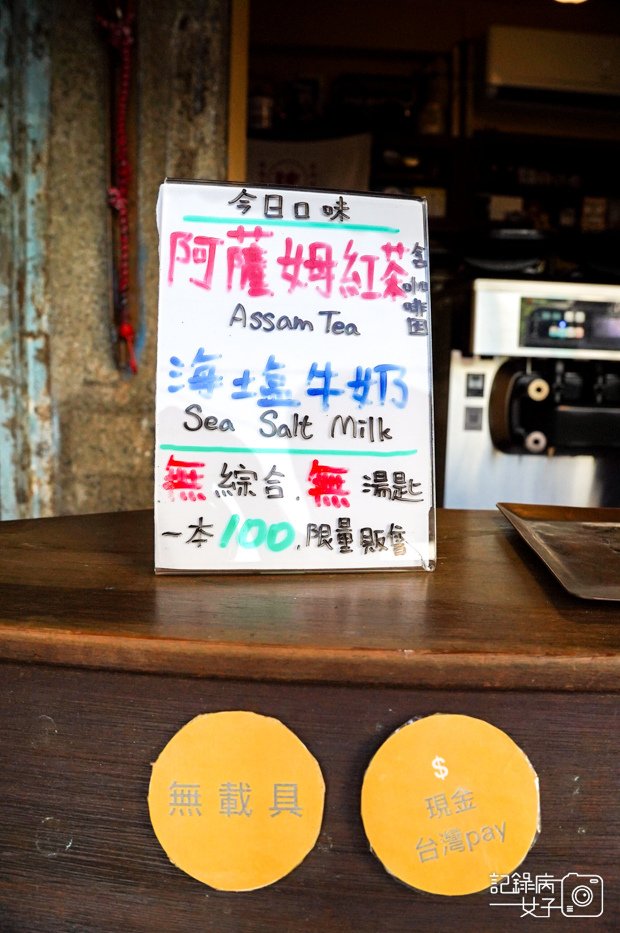 今日口味
阿薩姆紅茶
含咖啡因
Assam Tea
海塩牛奶
Sea Salt Milk
無綜合.無湯匙
一本100.限量販售
無載具
$
現金
台灣pay
記錄病
女子